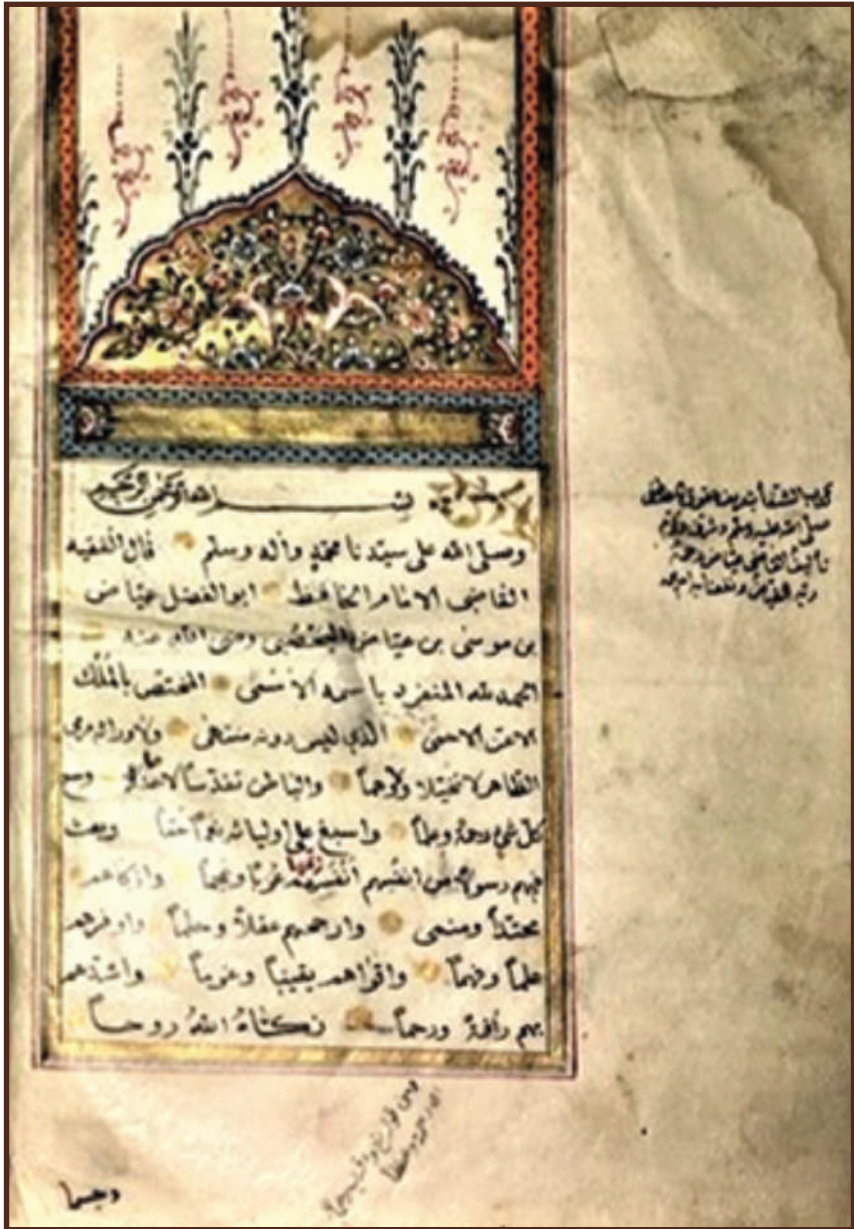 بسم الله الرحمن الرحيم
وصلى الله على سيدنا محمد واله وسلم قال الفقيه
القاضى الامام الحافظ ابو الفضل عياض
بن موسى بن عياض اليحصبى رضى الله عنه
الحمد لله المنفرد باسمه الاسمى المختص بالملك
الاعز الاحمى الذي ليس دونه منتهى ولا وراءه مرمى
الظاهر لا تخيلا ولا وهماً والباطن تقدساً لا عدما وسع
كل شي رحمة وعلماً واسبغ على اوليائه نعماً عمّاً وبعث
فيهم رسولا من انفسهم انفسهم عرباً وعجماً وازكاهم
محتداً ومنمى وارجحهم عقلاً وحلماً واوفرهم
علماً وفهماً واقواهم يقيناً وعزماً واشدهم
بهم رأفة ورحماً زكاه الله روحاً
وجسما
كتاب الشفا بتعريف حقوق المصطفى
صلى الله عليه وسلم وشرف وكرم
تأليف القاضي عياض رحمة